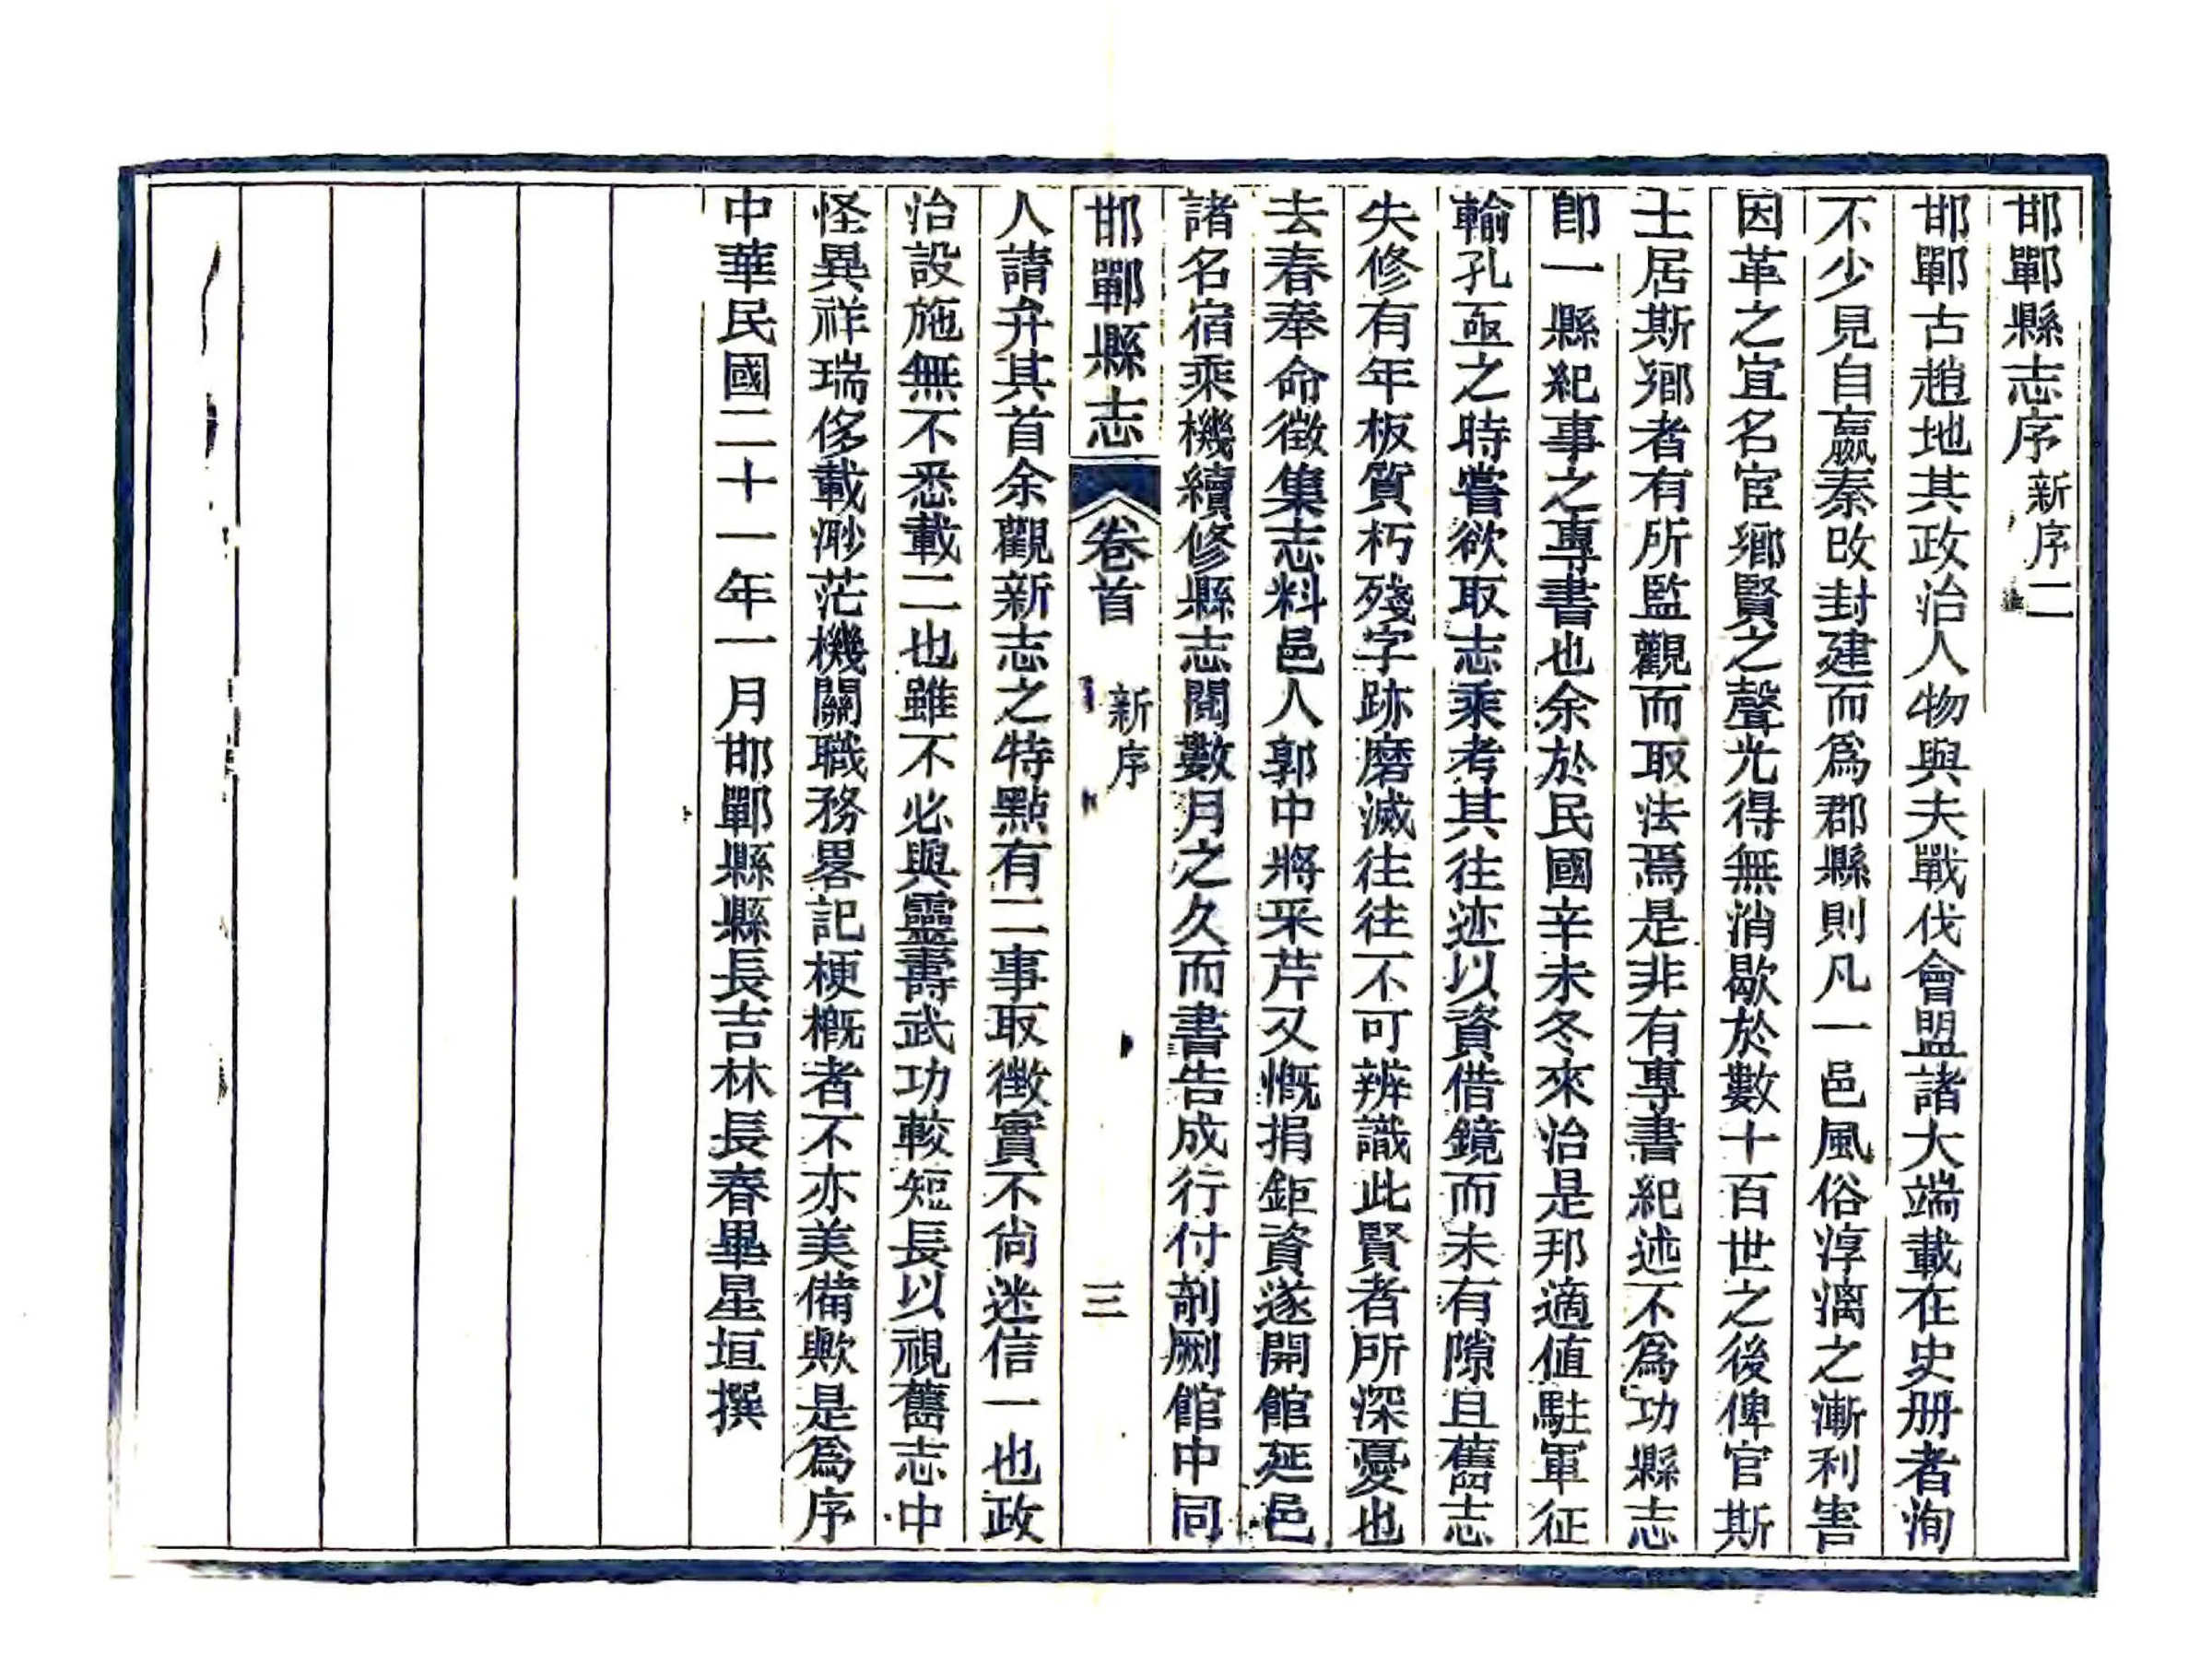 邯鄲縣志序新序二
邯鄲古趙地其政治人物與夫戰伐會盟諸大端載在史册者洵
不少見自嬴秦改封建而爲郡縣則凡一邑風俗淳漓之漸利害
因革之宜名宦鄉賢之聲光得無消歇於數十百世之後俾官斯
土居斯鄉者有所監觀而取法焉是非有專書紀述不爲功縣志
卽一縣紀事之專書也余於民國辛未冬來治是邦適值駐軍征
輸孔亟之時嘗欲取志乘考其往迹以資借鏡而未有隙且舊志
失修有年板質朽殘字跡磨滅往往不可辨識此賢者所深憂也
去春奉命徵集志料邑人郭中將采芹又慨捐鉅資遂開館延邑
諸名宿乘機續修縣志閱數月之久而書告成行付剞劂館中同
邯鄲縣志 卷首 新序 三
人請弁其首余觀新志之特點有二事取徵實不尚迷信一也政
治設施無不悉載二也雖不必與靈壽武功較短長以視舊志中
怪異祥瑞侈載渺茫機關職務畧記梗概者不亦美備歟是爲序
中華民國二十一年一月邯鄲縣縣長吉林長春畢星垣撰